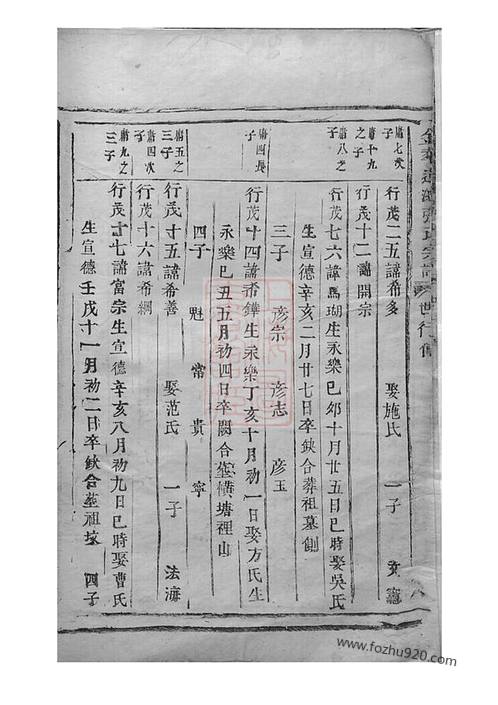 庸七次子
行茂二五諱希多 娶施氏 一子 文寵
庸十九之子
行茂十二諱開宗
庸八之子
行茂七六諱馬瑚生永樂己卯十月廿五日巳時娶吳氏
生宣德辛亥二月廿七日卒缺合葬祖墓側
三子 彥宗 彥志 彥玉
庸四長子
行茂十四諱希鏵生永樂丁亥十月初一日娶方氏生
永樂己丑五月初四日卒闕合塟橫塘裡山
四子 魁 常 貴 寧
庸五之三子
行茂十五諱希善 娶范氏 一子 法海
庸四次子
行茂十六諱希綱
庸九之三子
行茂十七諱富宗生宣德辛亥八月初九日巳時娶曹氏
生宣德壬戌十一月初二日卒缺合塟祖墳 四子
www.fozhu920.com